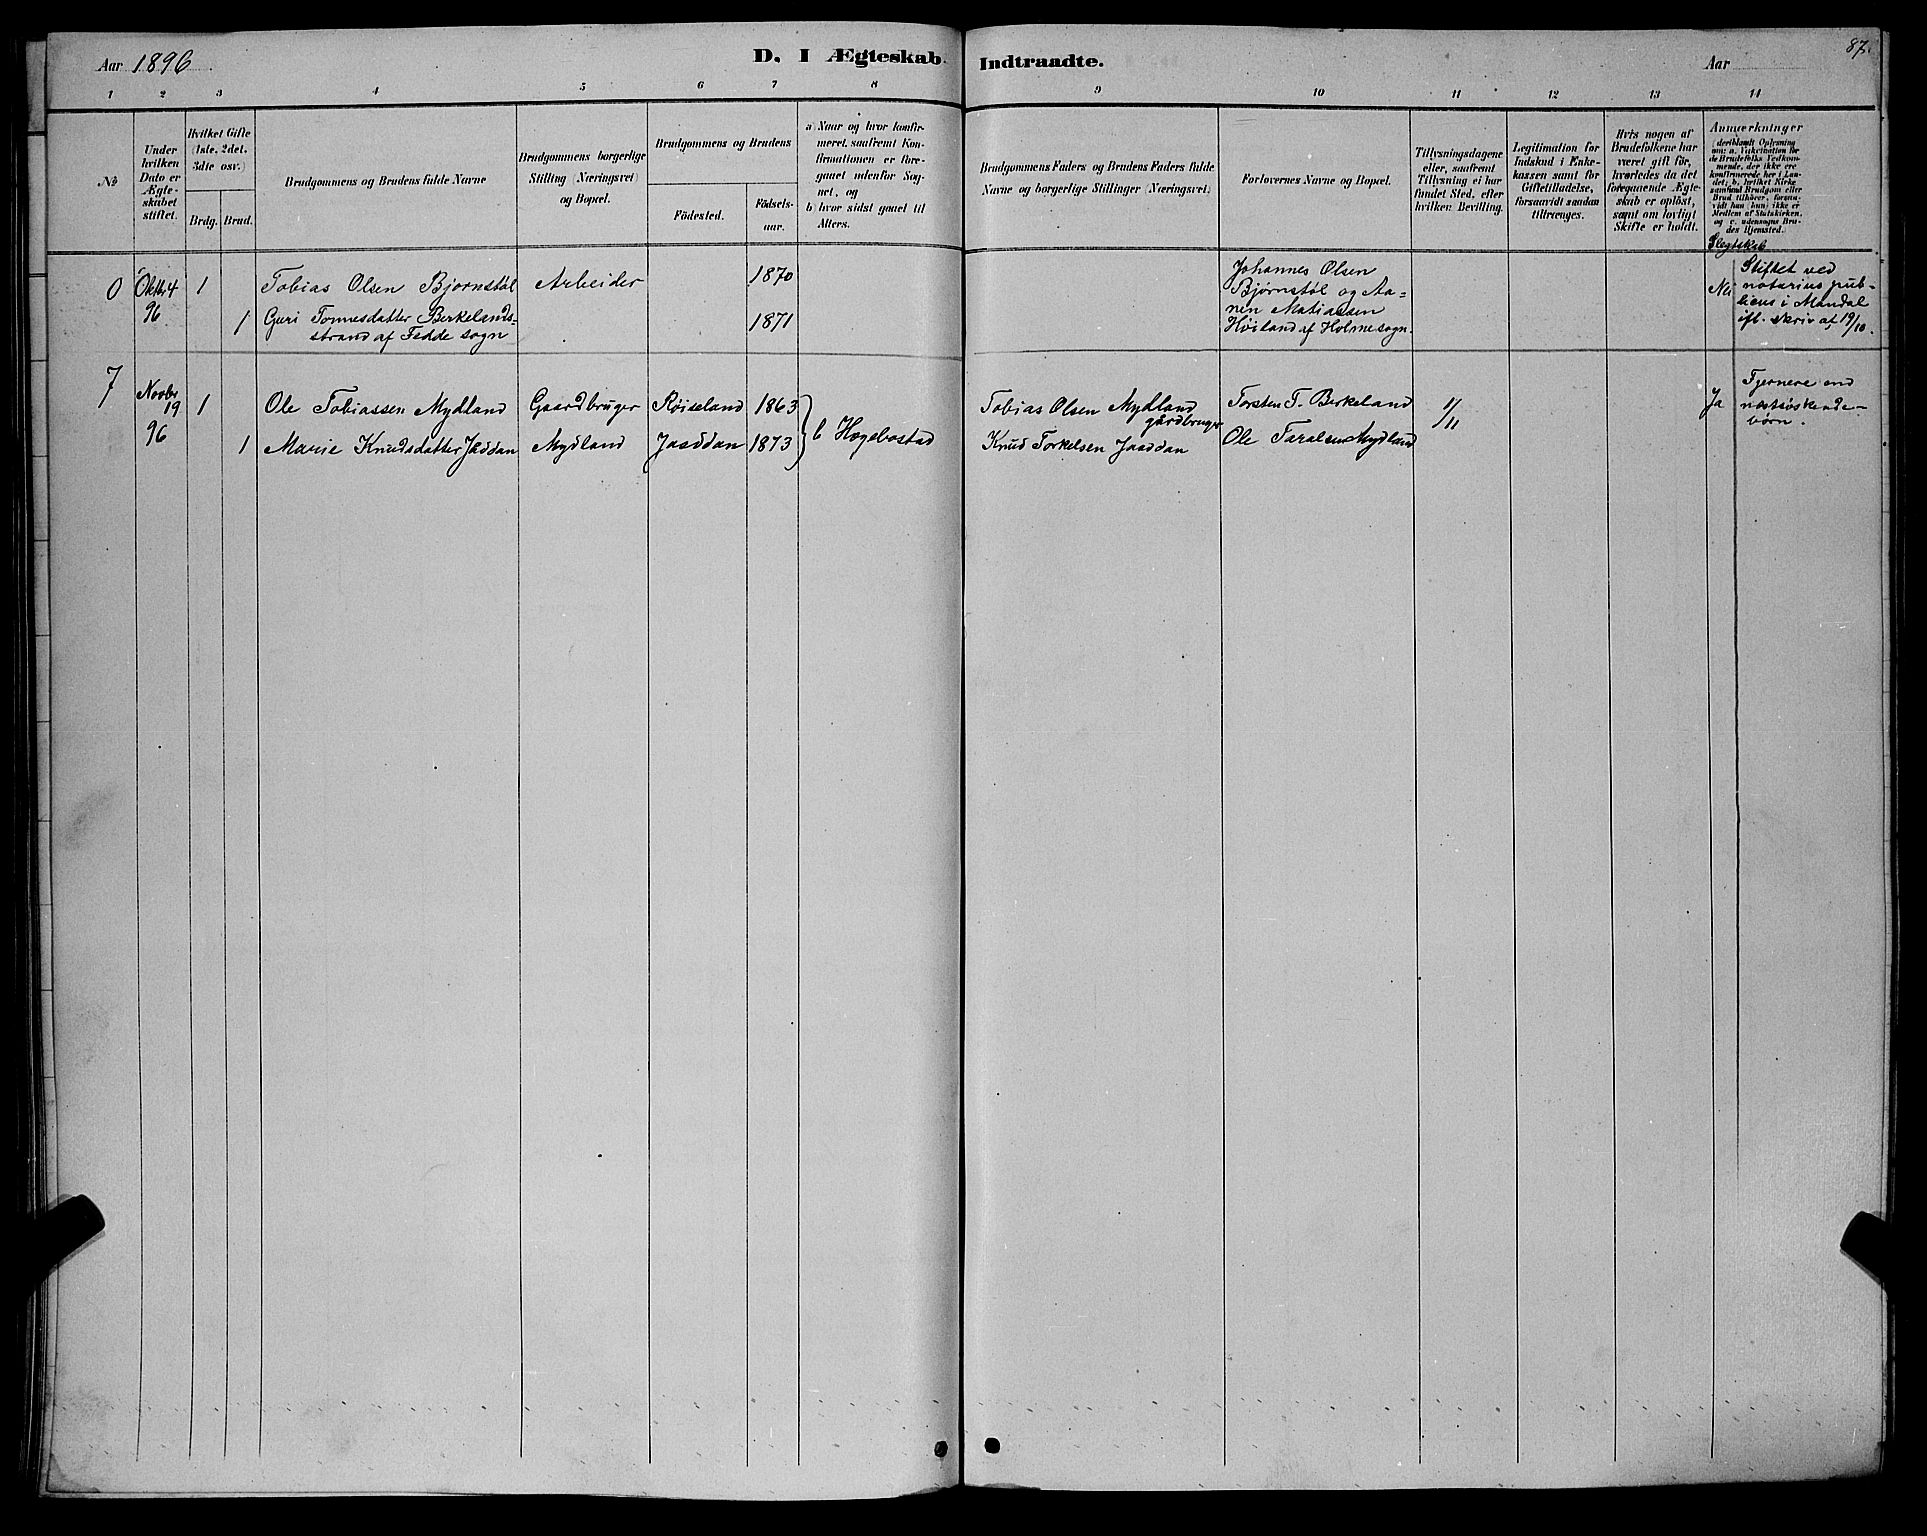 Aar 1896
D. I Ægteskab Indtraadte.
Aar
87.
1 2 3 4 5 6 7 8 9 10 11 12 13 14
No
Under hvilken Dato er Ægteskabet stiftet.
Hvilket Gifte (1ste, 2det, 3die osv.)
Brdg. Brud.
Brudgommens og Brudens fulde Navne
Brudgommens borgerlige Stilling (Næringsvei) og Bopæl.
Brudgommens og Brudens
Fødested.
Fødsels-aar.
a) Naar og hvor konfirmeret, saafremt Konfirmationen er foregaaet udenfor Sognet, og
b) hvor sidst gaaet til Alters.
Brudgommens Faders og Brudens Faders fulde Navne og borgerlige Stillinger (Næringsvei).
Forlovernes Navne og Bopæl.
Tillysningsdagene eller, saafremt Tillysning ei har fundet Sted, efter hvilken Bevilling.
Legitimation for Indskud i Enkekassen samt for Giftetilladelse, forsaavidt saadan tiltrænges.
Hvis nogen af Brudefolkene har været gift før, hvorledes da det foregaaende Ægteskab er opløst, samt om lovligt Skifte er holdt.
Anmærkninger (deriblandt Oplysning om: a. Vakcination for de Brudefolks Vedkommende, der ikke ere konfirmerede her i Landet; b. hvilket Kirkesamfund Brudgom eller Brud tilhører, forsaavidt han (hun) ikke er Medlem af Statskirken, og c. udensogns Brudes Hjemsted.
Slegtskab
0 Oktbr 4 1 Tobias Olsen Bjørnstøl Arbeider 1870
96 1 Guri Tønnesdatter Berkelands-
strand af Fedde sogn 1871
Johannes Olsen
Bjørnstøl og Aa-
nen Matiassen
Høiland af Holme sogn.
Nei
Stiftet ved
notarius pub-
licus i Mandal
ifl. skriv af 19/10.
7 Novbr 19 1 Ole Tobiassen Mydland Gaardbruger Røiseland 1863
96 1 Marie Knudsdatter Jaddan Mydland Jaaddan 1873
b Hægebostad
Tobias Olsen Mydland
gårdbruger
Knud Torkelsen Jaaddan
Torsten T. Berkeland
Ole Taralsen Mydland
1/11
Ja
Fjernere end
næstsøskende-
børn.